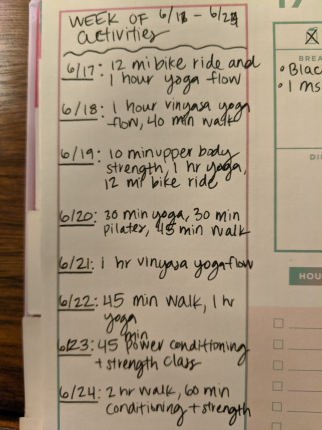 WEEK OF 6/18 - 6/24
activities
6/17: 12 mi bike ride and
1 hour yoga flow
6/18: 1 hour vinyasa yoga
flow, 40 min walk
6/19: 10 min upper body
strength, 1 hr yoga,
12 mi bike ride
6/20: 30 min yoga, 30 min
pilates, 45 min walk
6/21: 1 hr vinyasa yoga flow
6/22: 45 min walk, 1 hr
yoga
6/23: 45 min power conditioning
+ strength class
6/24: 2 hr walk, 60 min
conditioning + strength
17
BREA
• Blac
• 1 ms
DI
HOU